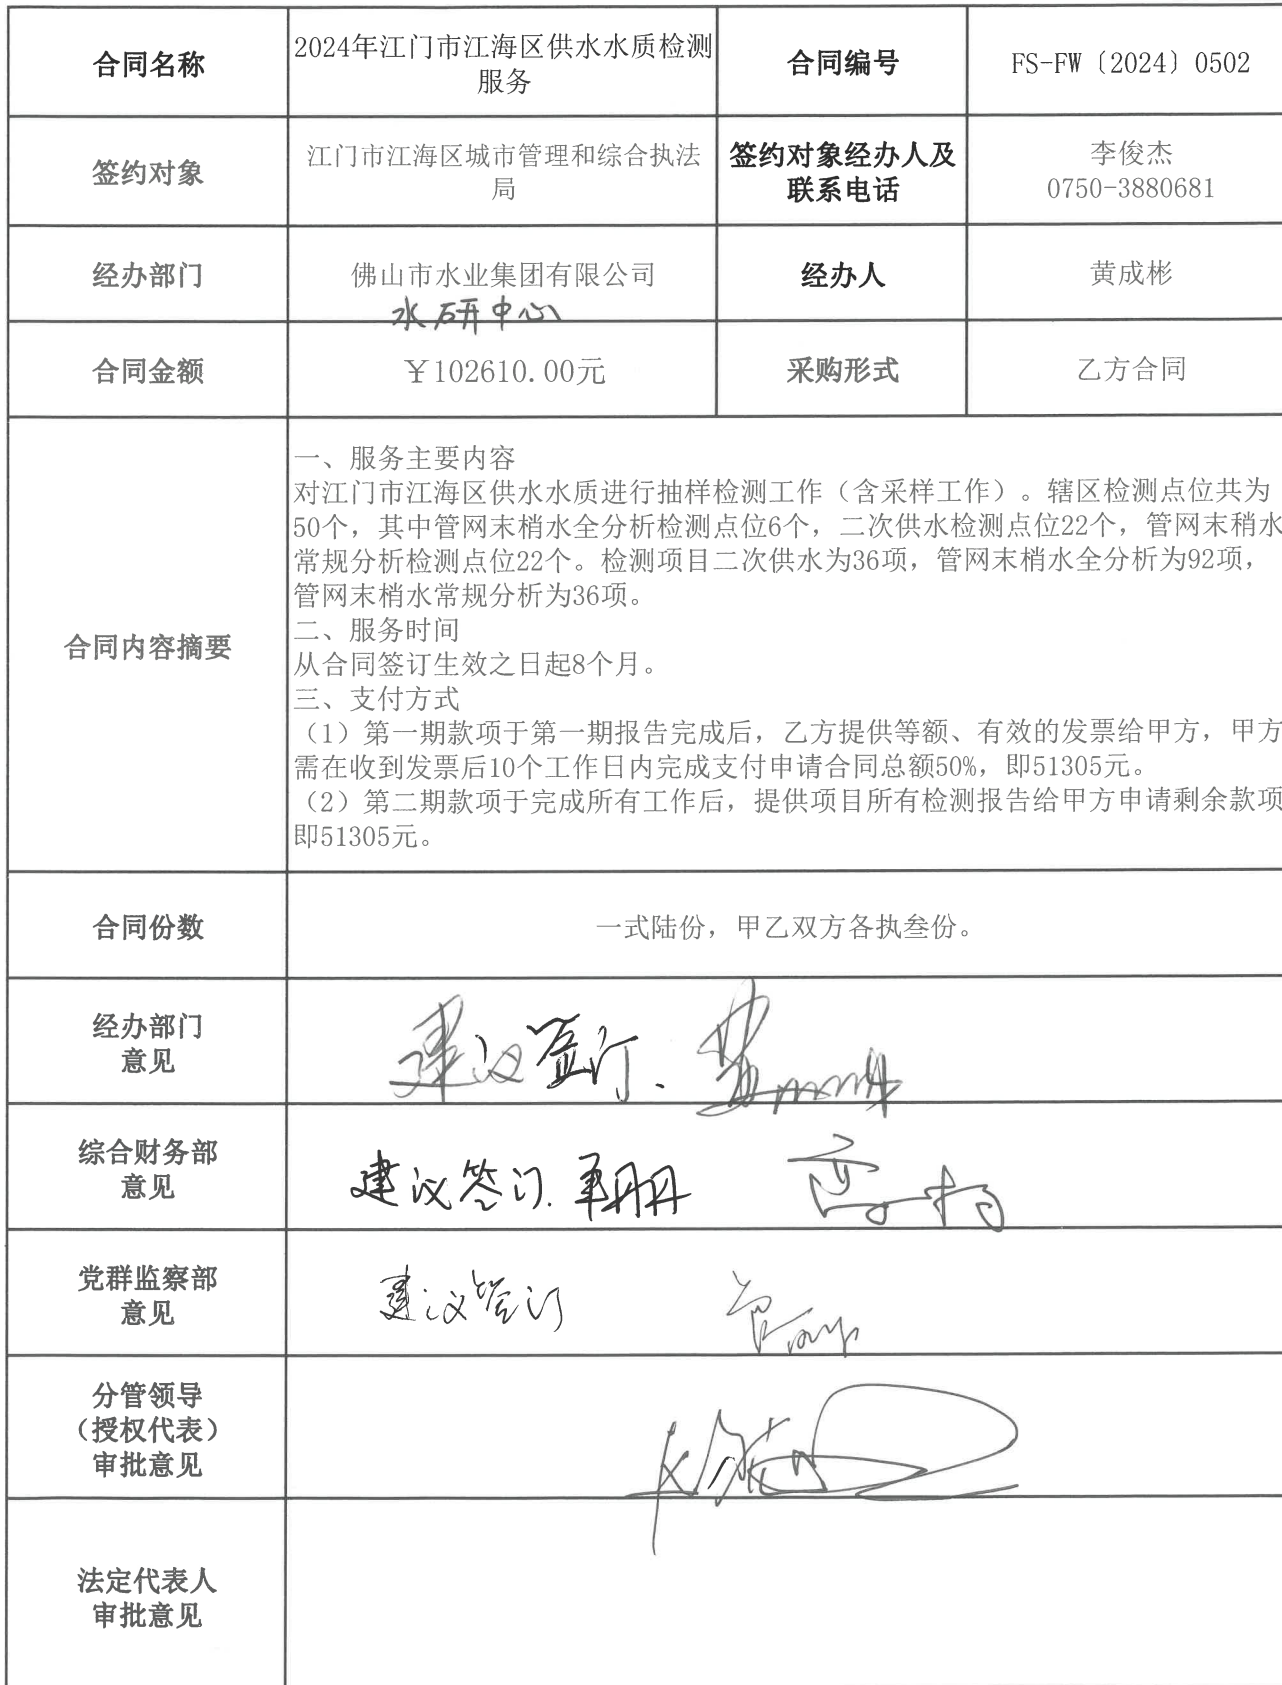 合同名称
2024年江门市江海区供水水质检测
服务
合同编号
FS-FW〔2024〕0502
签约对象
江门市江海区城市管理和综合执法
局
签约对象经办人及
联系电话
李俊杰
0750-3880681
经办部门
佛山市水业集团有限公司
水研中心
经办人
黄成彬
合同金额
￥102610.00元
采购形式
乙方合同
合同内容摘要
一、服务主要内容
对江门市江海区供水水质进行抽样检测工作（含采样工作）。辖区检测点位共为
50个，其中管网末梢水全分析检测点位6个，二次供水检测点位22个，管网末稍水
常规分析检测点位22个。检测项目二次供水为36项，管网末梢水全分析为92项，
管网末梢水常规分析为36项。
二、服务时间
从合同签订生效之日起8个月。
三、支付方式
（1）第一期款项于第一期报告完成后，乙方提供等额、有效的发票给甲方，甲方
需在收到发票后10个工作日内完成支付申请合同总额50%，即51305元。
（2）第二期款项于完成所有工作后，提供项目所有检测报告给甲方申请剩余款项
即51305元。
合同份数
一式陆份，甲乙双方各执叁份。
经办部门
意见
建议签订.
综合财务部
意见
建议签订.
党群监察部
意见
建议签订
分管领导
（授权代表）
审批意见
法定代表人
审批意见